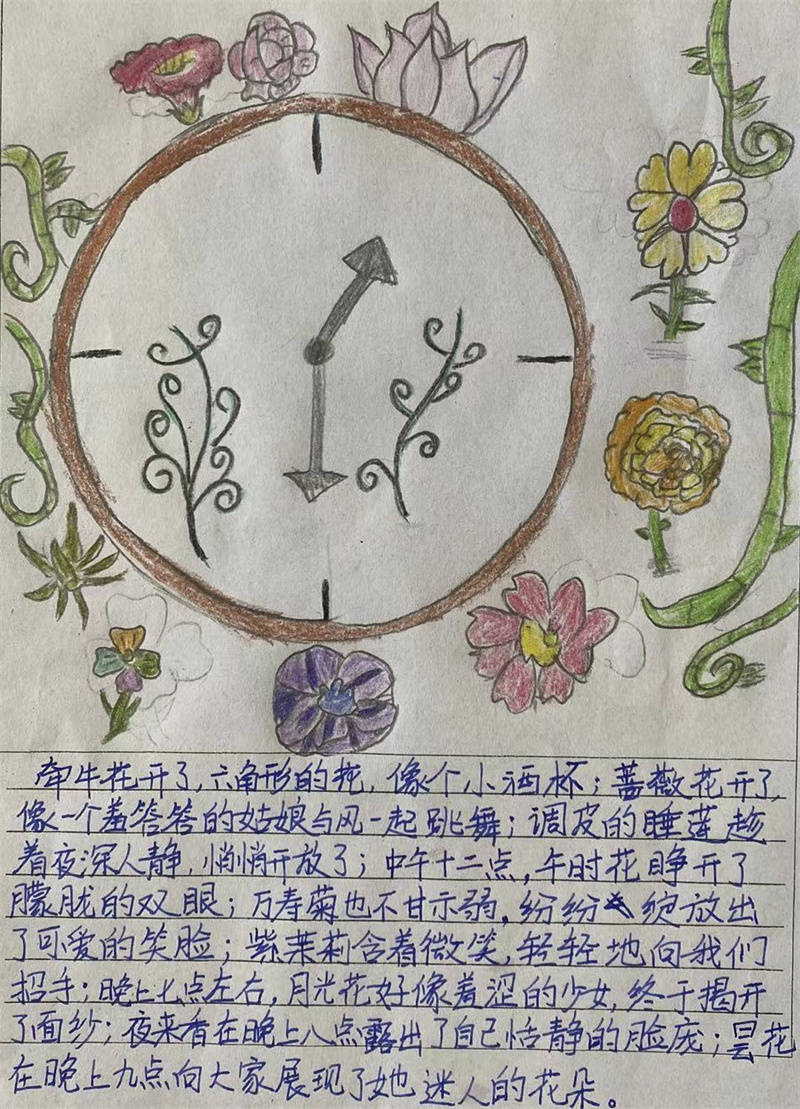 牵牛花开了,六角形的花,像个小酒杯;蔷薇花开了,
像一个羞答答的姑娘与风一起跳舞;调皮的睡莲趁
着夜深人静,悄悄开放了;中午十二点,午时花睁开了
朦胧的双眼;万寿菊也不甘示弱,纷纷绽放出
了可爱的笑脸;紫茉莉含着微笑,轻轻地向我们
招手;晚上七点左右,月光花好像羞涩的少女,终于揭开
了面纱;夜来香在晚上八点露出了自己恬静的脸庞;昙花
在晚上九点向大家展现了她迷人的花朵。